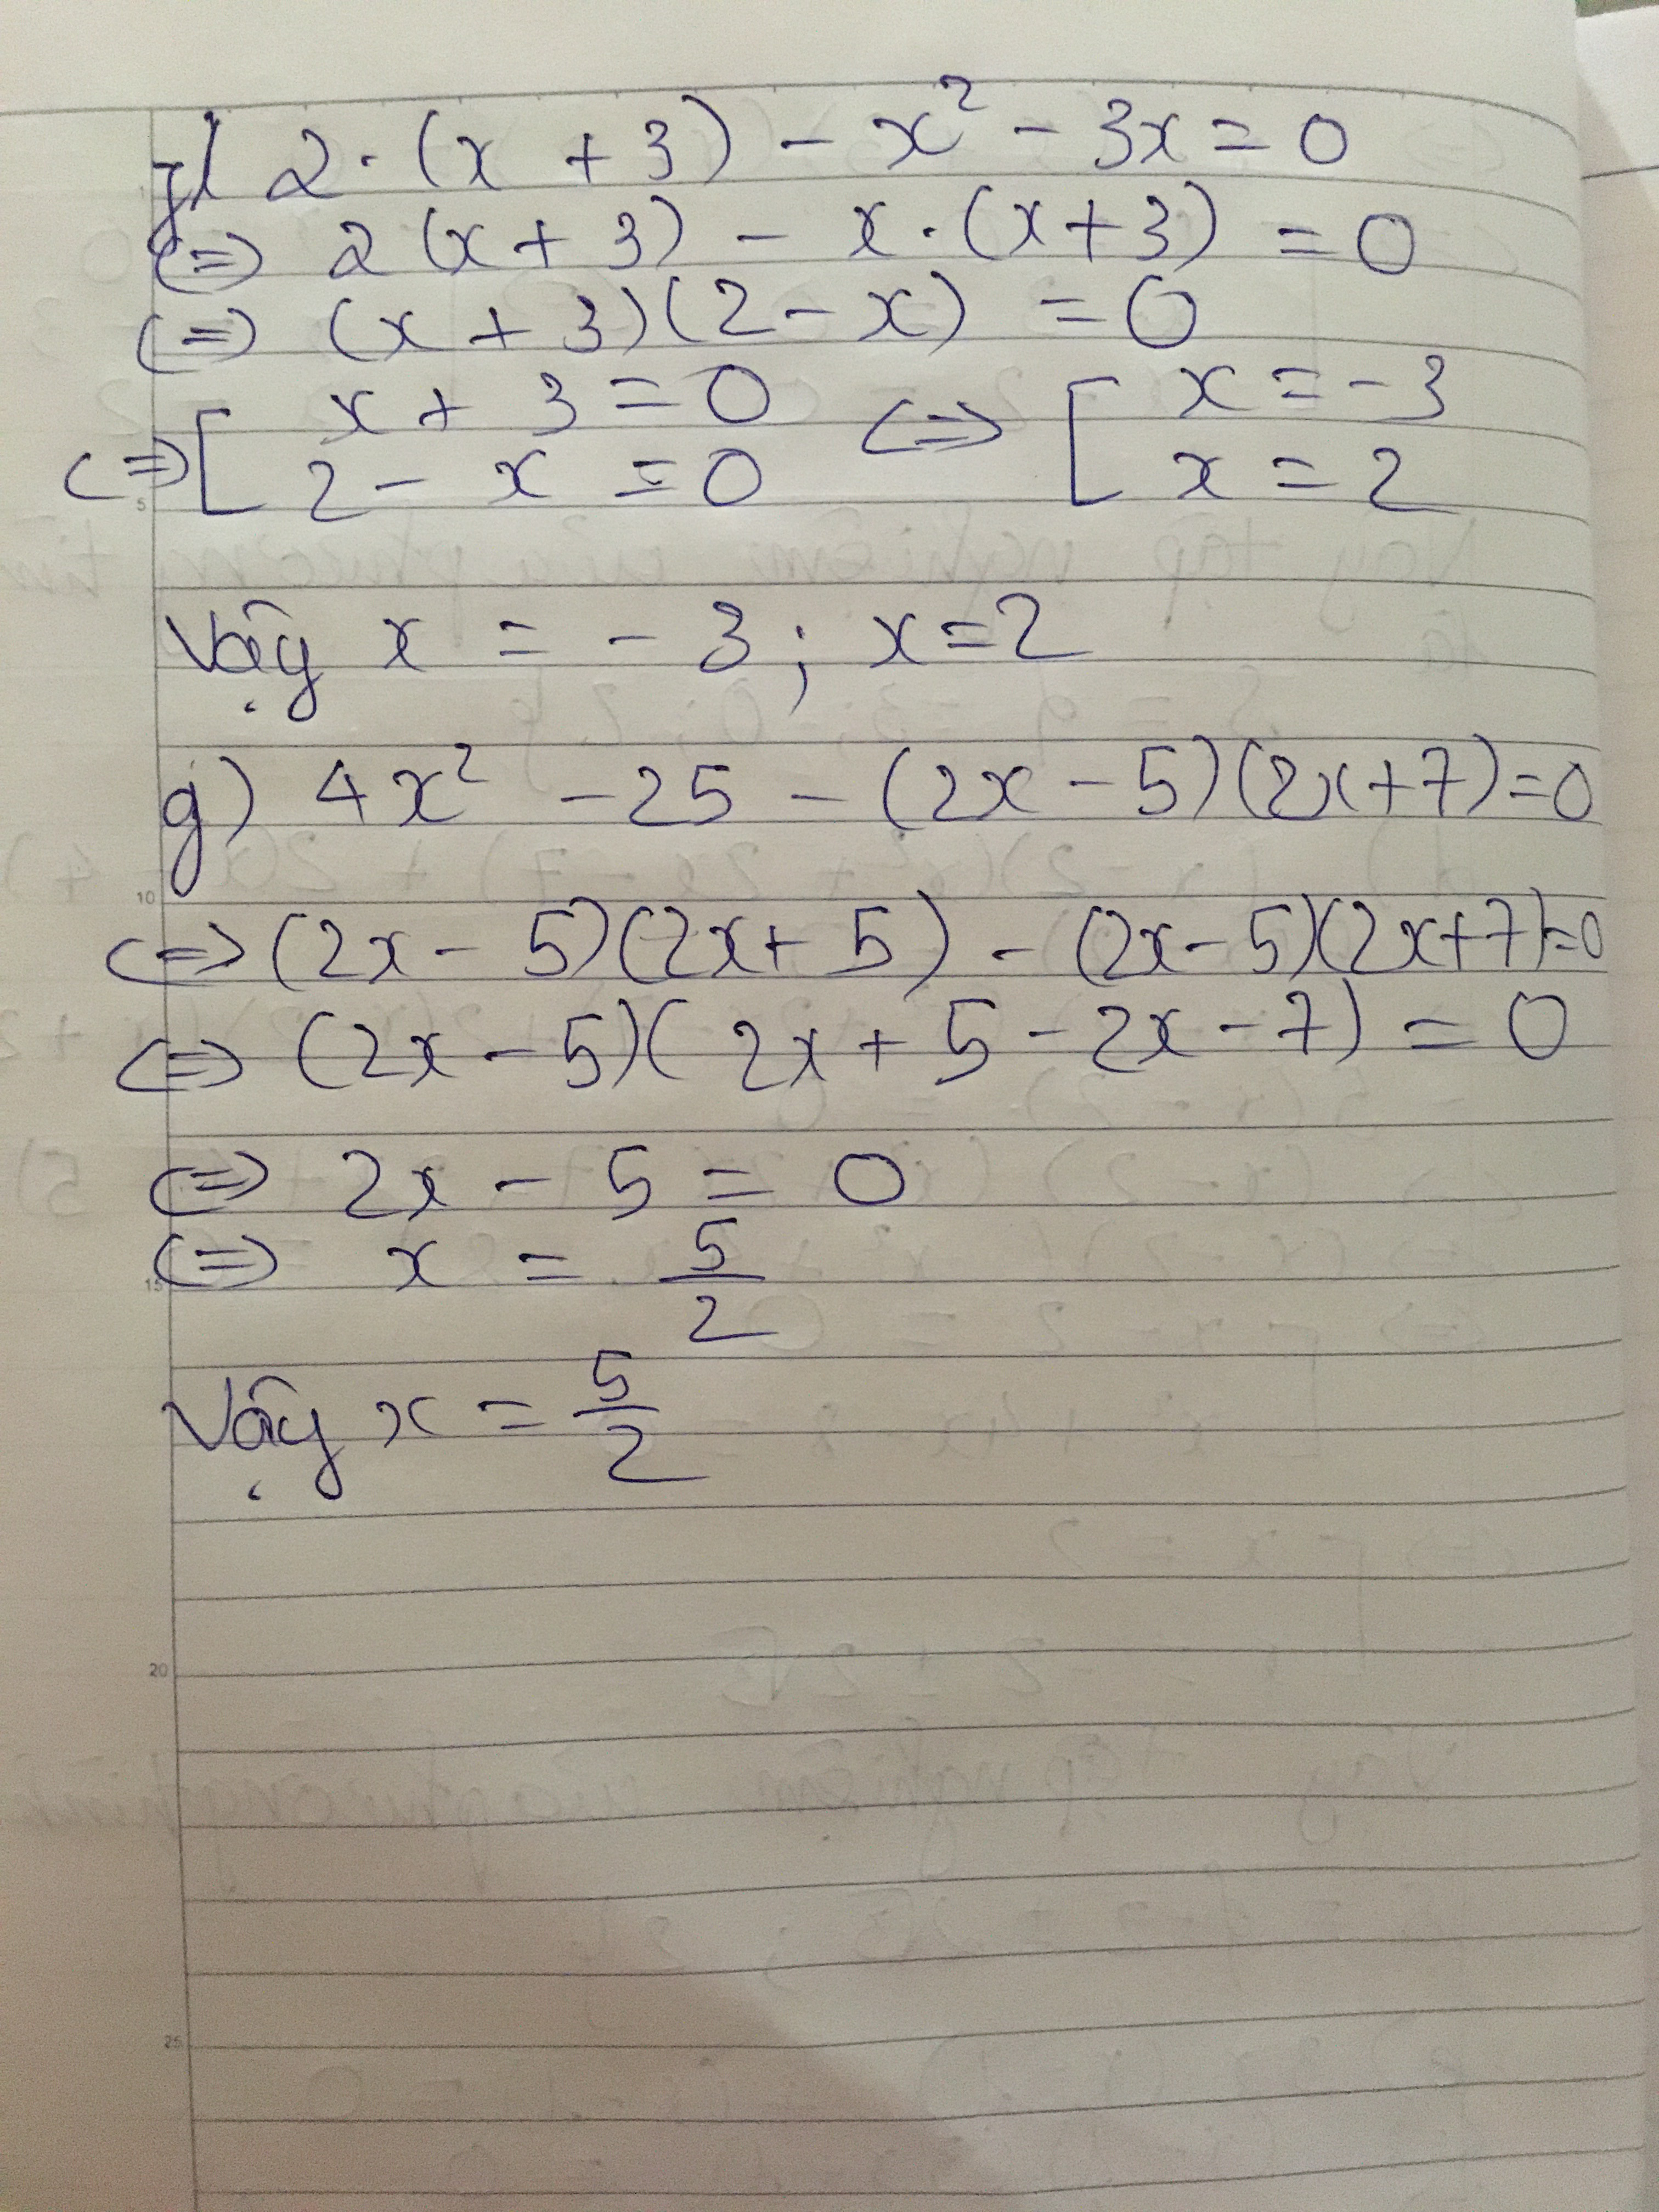 f) 2·(x + 3) - x² - 3x = 0
<=> 2(x + 3) - x·(x+3) = 0
<=> (x + 3)(2 - x) = 0
<=> [ x + 3 = 0 <=> [ x = -3
2 - x = 0 x = 2
Vậy x = -3; x = 2
g) 4x² - 25 - (2x - 5)(2x+7)=0
<=> (2x - 5)(2x + 5) - (2x-5)(2x+7)=0
<=> (2x - 5)(2x + 5 - 2x - 7) = 0
<=> 2x - 5 = 0
<=> x = 5/2
Vậy x = 5/2